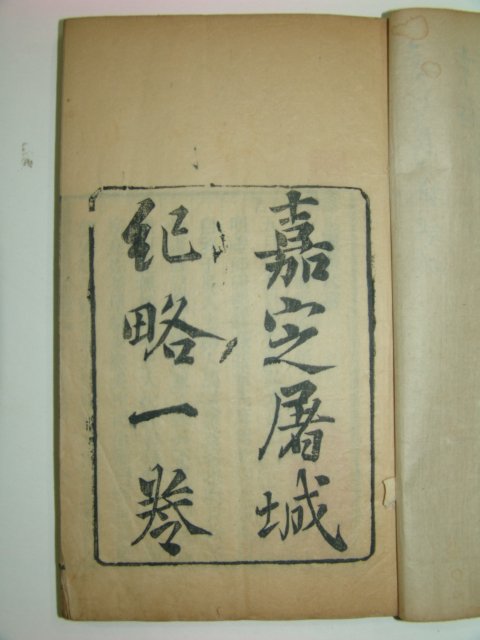 嘉定屠城
紀略一卷